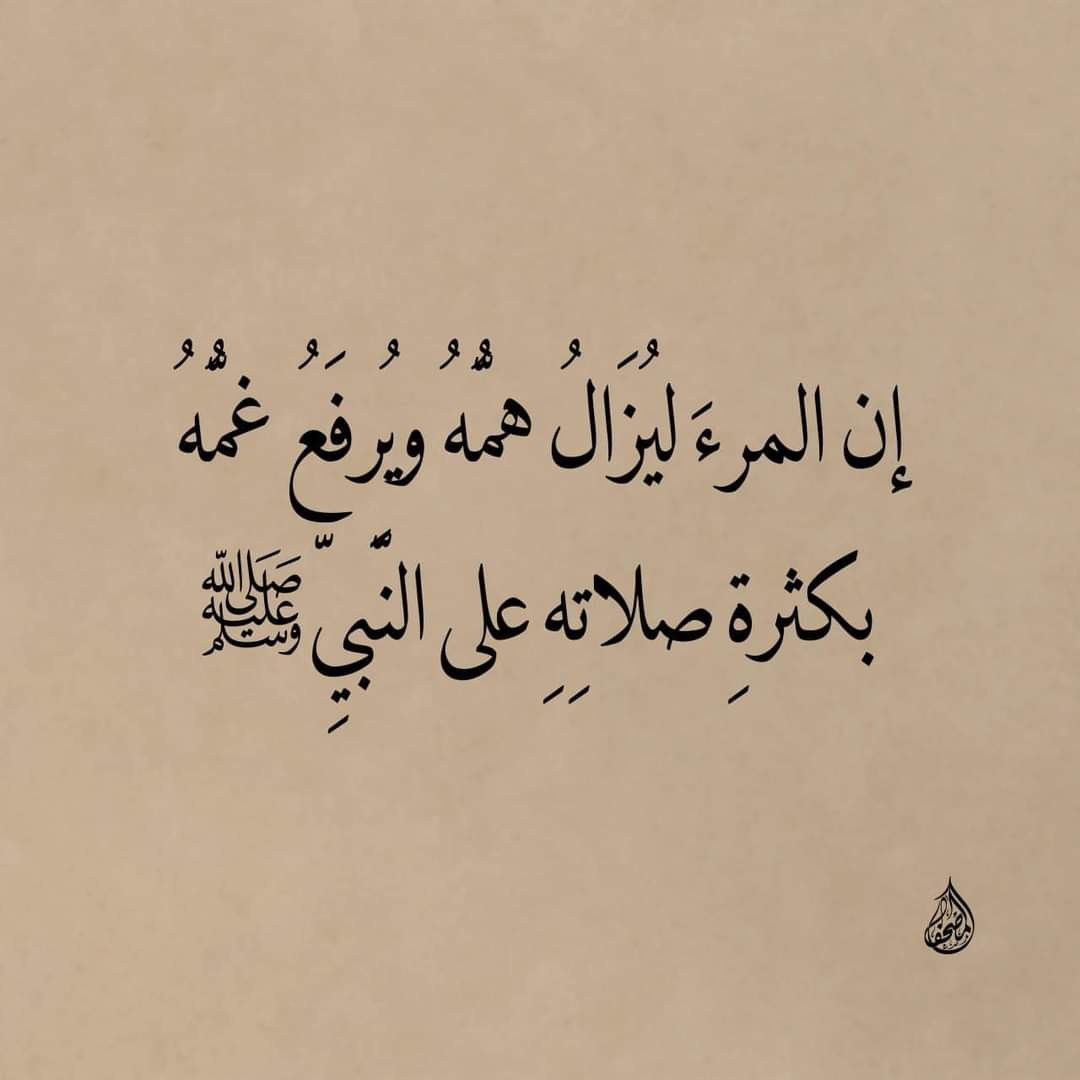 إن المرءَ ليُزَالُ همُّهُ ويُرفَعُ غمُّهُ
بكثرةِ صلاتِهِ على النَّبيِّ ﷺ